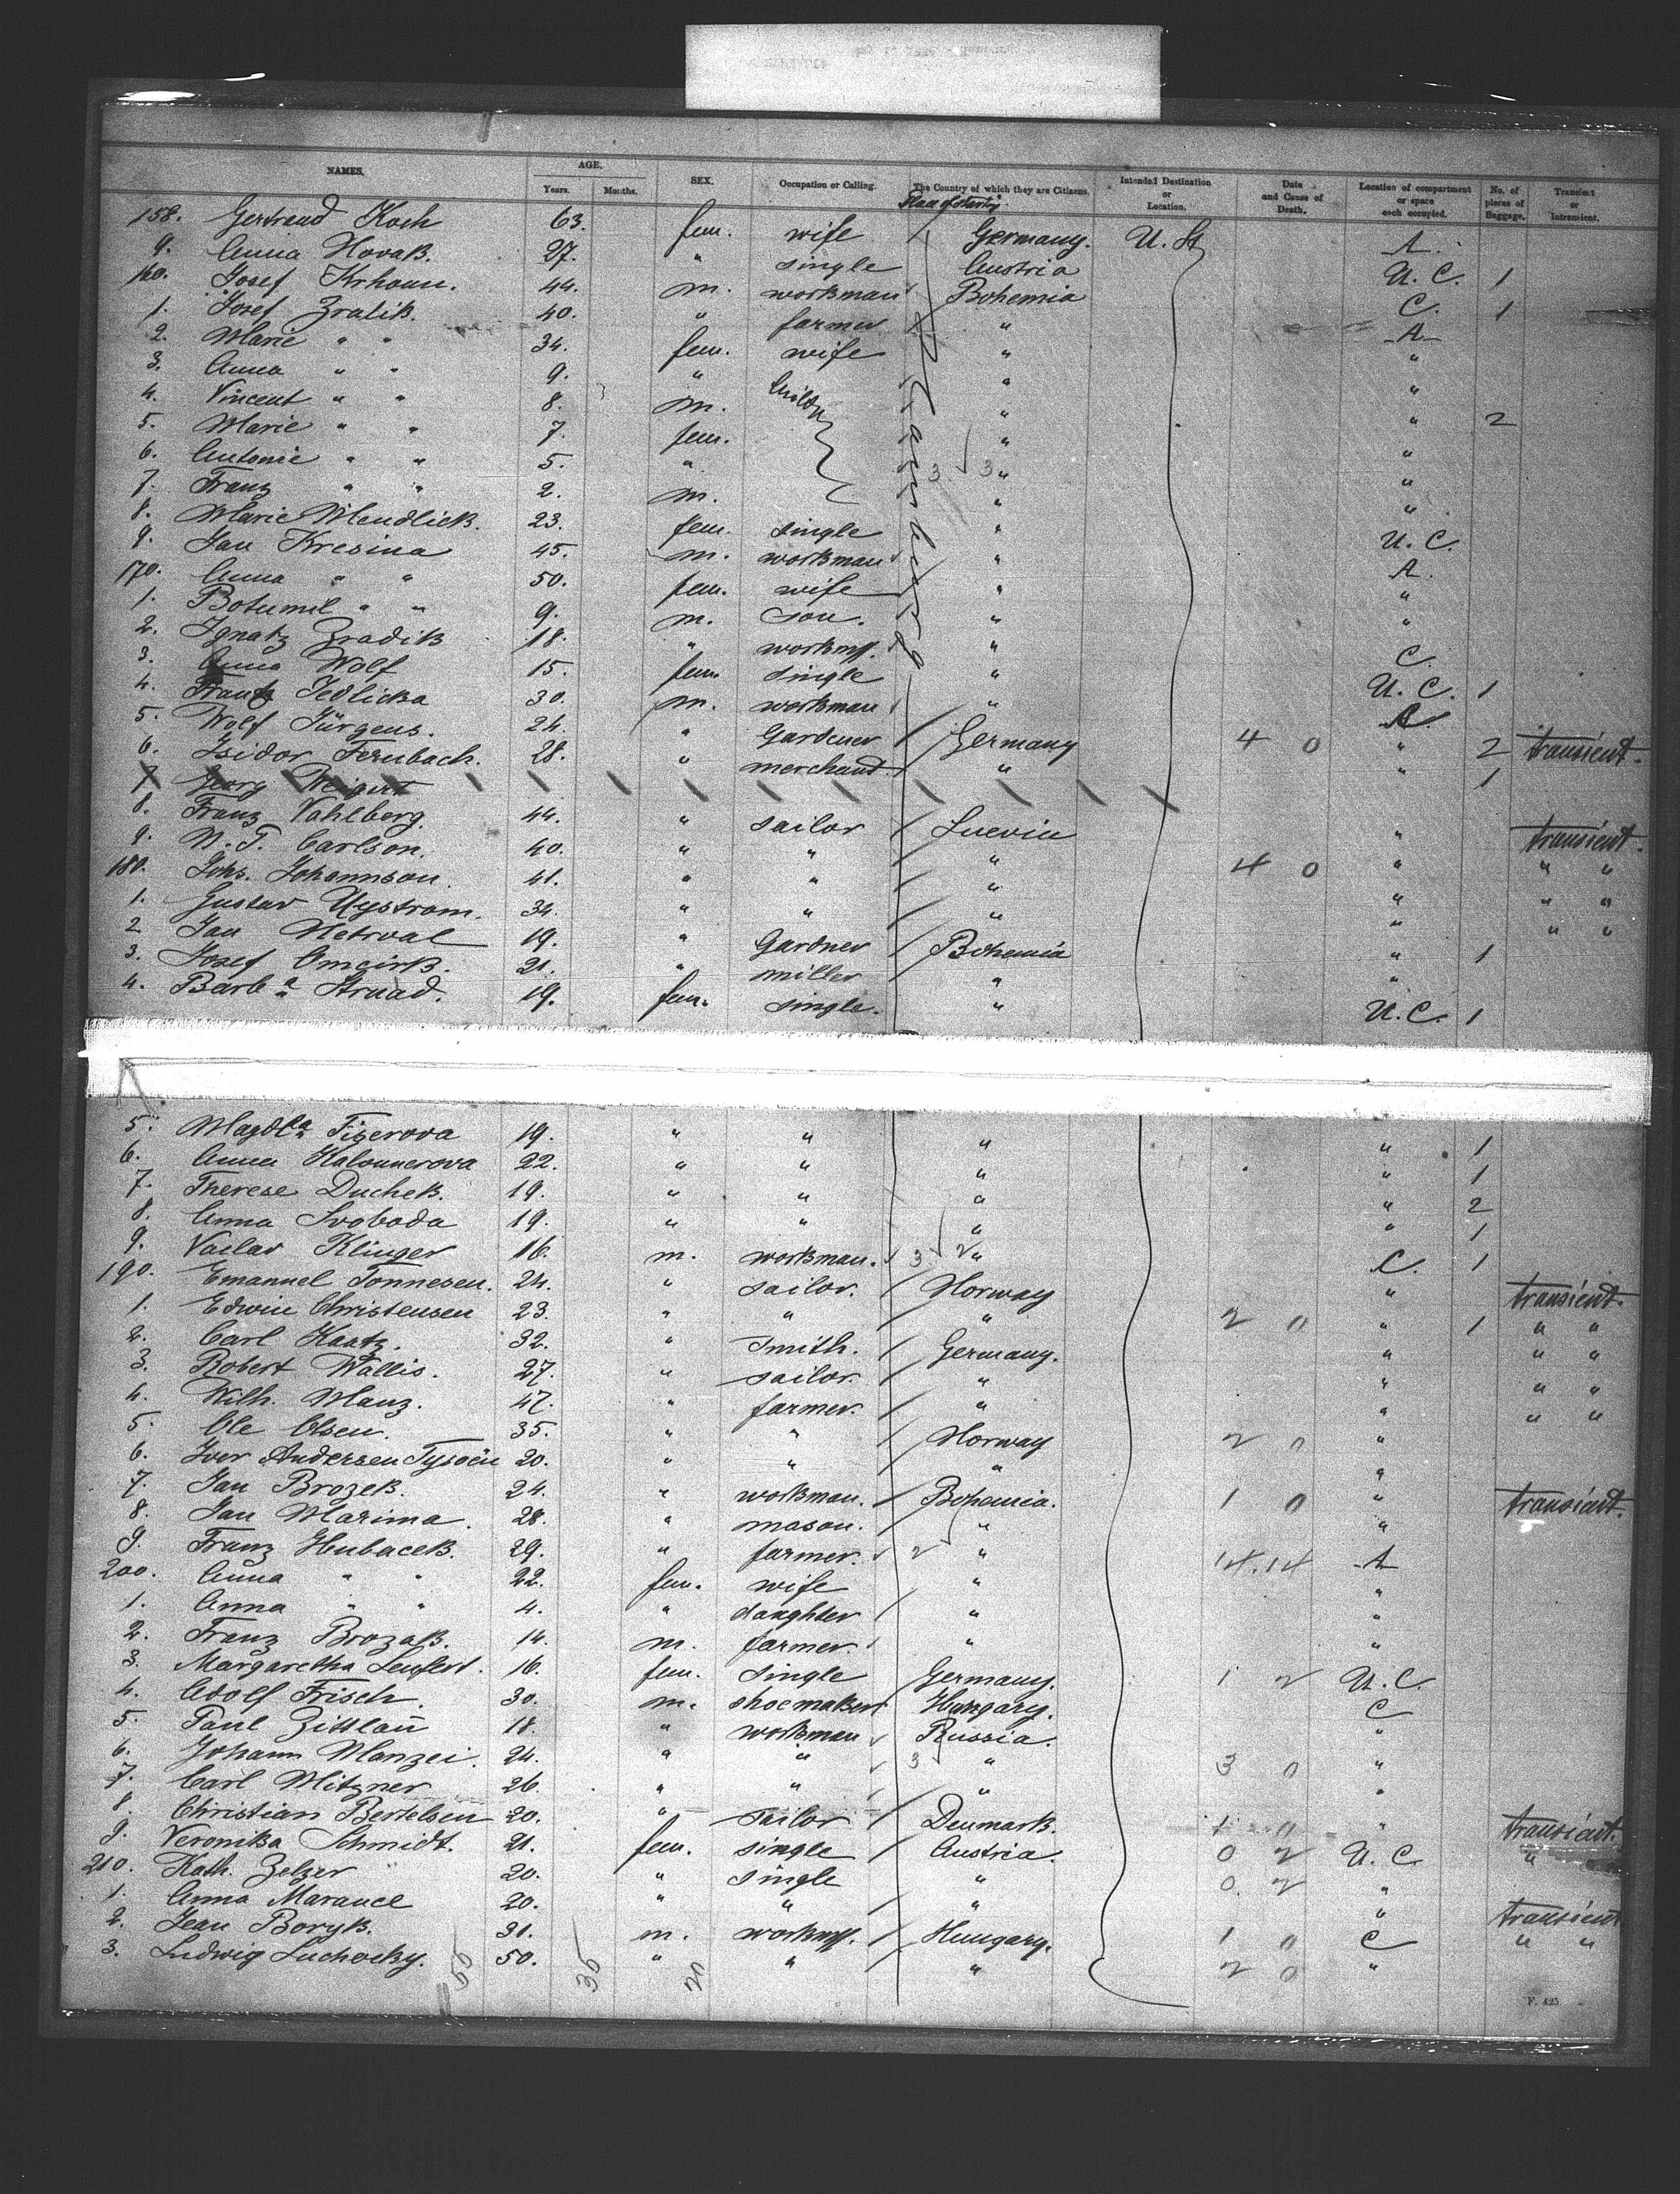 NAMES. AGE. Years. Months. SEX. Occupation or Calling. The Country of which they are Citizens. Intended Destination or Location. Date and Cause of Death. Location of compartment or space each occupied. No. of pieces of Baggage. Transient or Intransient.
158. Gertraud Koch 63. fem. wife Germany. U. St A.
9. Anna Novak. 27. " single Austria U. C. 1
160. Josef Krhoun. 44. m. workman Bohemia C. 1
1. Josef Zralik. 40. " farmer " A
2. Marie " " 34. fem. wife " "
3. Anna " " 9. " " "
4. Vincent " " 8. m. " " 2
5. Marie " " 7. fem. " "
6. Antonie " " 5. " 3 3 " "
7. Franz " " 2. m. " "
8. Marie Mendlick. 23. fem. single " U. C.
9. Jan Kresina 45. m. workman " A.
170. Anna " " 50. fem. wife " "
1. Bohumil " " 9. m. son. " "
2. Ignatz Zradik 18. " workm. " C.
3. Anna Wolf 15. fem. single " U. C. 1
4. Frantz Jedlicka 30. m. workman " C.
5. Wolf Jürgens. 24. " Gardener Germany 4 0 " 2 transient.
6. Isidor Fernbach. 28. " merchand. " " 1
7. Georg Weigert
8. Franz Vahlberg. 44. " sailor Suevia " transient.
9. N. T. Carlson. 40. " " " 4 0 " " "
180. Johs. Johannson. 41. " " " " " "
1. Gustav Nystrom. 34. " " " " " "
2 Jan Netrval 19. " Gardner Bohemia " 1
3. Josef Omcirk. 21. " miller " "
4. Barb a Strnad. 19. fem. single. " U.C. 1
5. Magdla Fizerova 19. " " " " 1
6. Anna Kalounerova 22. " " " " 1
7. Therese Duchek. 19. " " " " 2
8. Anna Svoboda 19. " " " " 1
9. Vaclav Klinger 16. m. workman. 3 2 " C. 1
190. Emanuel Tonnesen. 24. " sailor. Norway " transient.
1. Edwin Christensen 23. " " " 2 0 " 1 " "
2. Carl Kaatz. 32. " smith. Germany. " " "
3. Robert Wallis. 27. " sailor. " " " "
4. Wilh. Manz. 47. " farmer. " " " "
5. Ole Olsen. 35. " " Norway 2 0 "
6. Iver Andersen Tysoën 20. " " " "
7. Jan Brozek. 24. " workman. Bohemia. 1 0 " transient.
8. Jan Marima. 28. " mason. " "
9. Franz Hubacek. 29. " farmer. 2 " 14.14 A
200. Anna " " 22. fem. wife " "
1. Anna " " 4. " daughter " "
2. Franz Brozak. 14. m. farmer. " "
3. Margaretha Leufert. 16. fem. single Germany. 1 2 U. C.
4. Adolf Frisch. 30. m. shoemaker Hungary. C
5. Paul Zittlau 18. " workman Russia. "
6. Johann Manzei. 24. " " 3 " 3 0 "
7. Carl Mitzner 26. " " " "
8. Christian Bertelsen 20. " sailor Denmark. 1 0 " transient.
9. Veronika Schmidt. 21. fem. single Austria. 0 2 U. C. "
210. Kath. Zelzer 20. " single " 0. 2 "
1. Anna Marance 20. " " " " transient
2. Jean Boryk. 31. m. workm. Hungary. 1 0 C " "
3. Ludwig Luchocky. 50. " " " 2 0 "
F. 425.